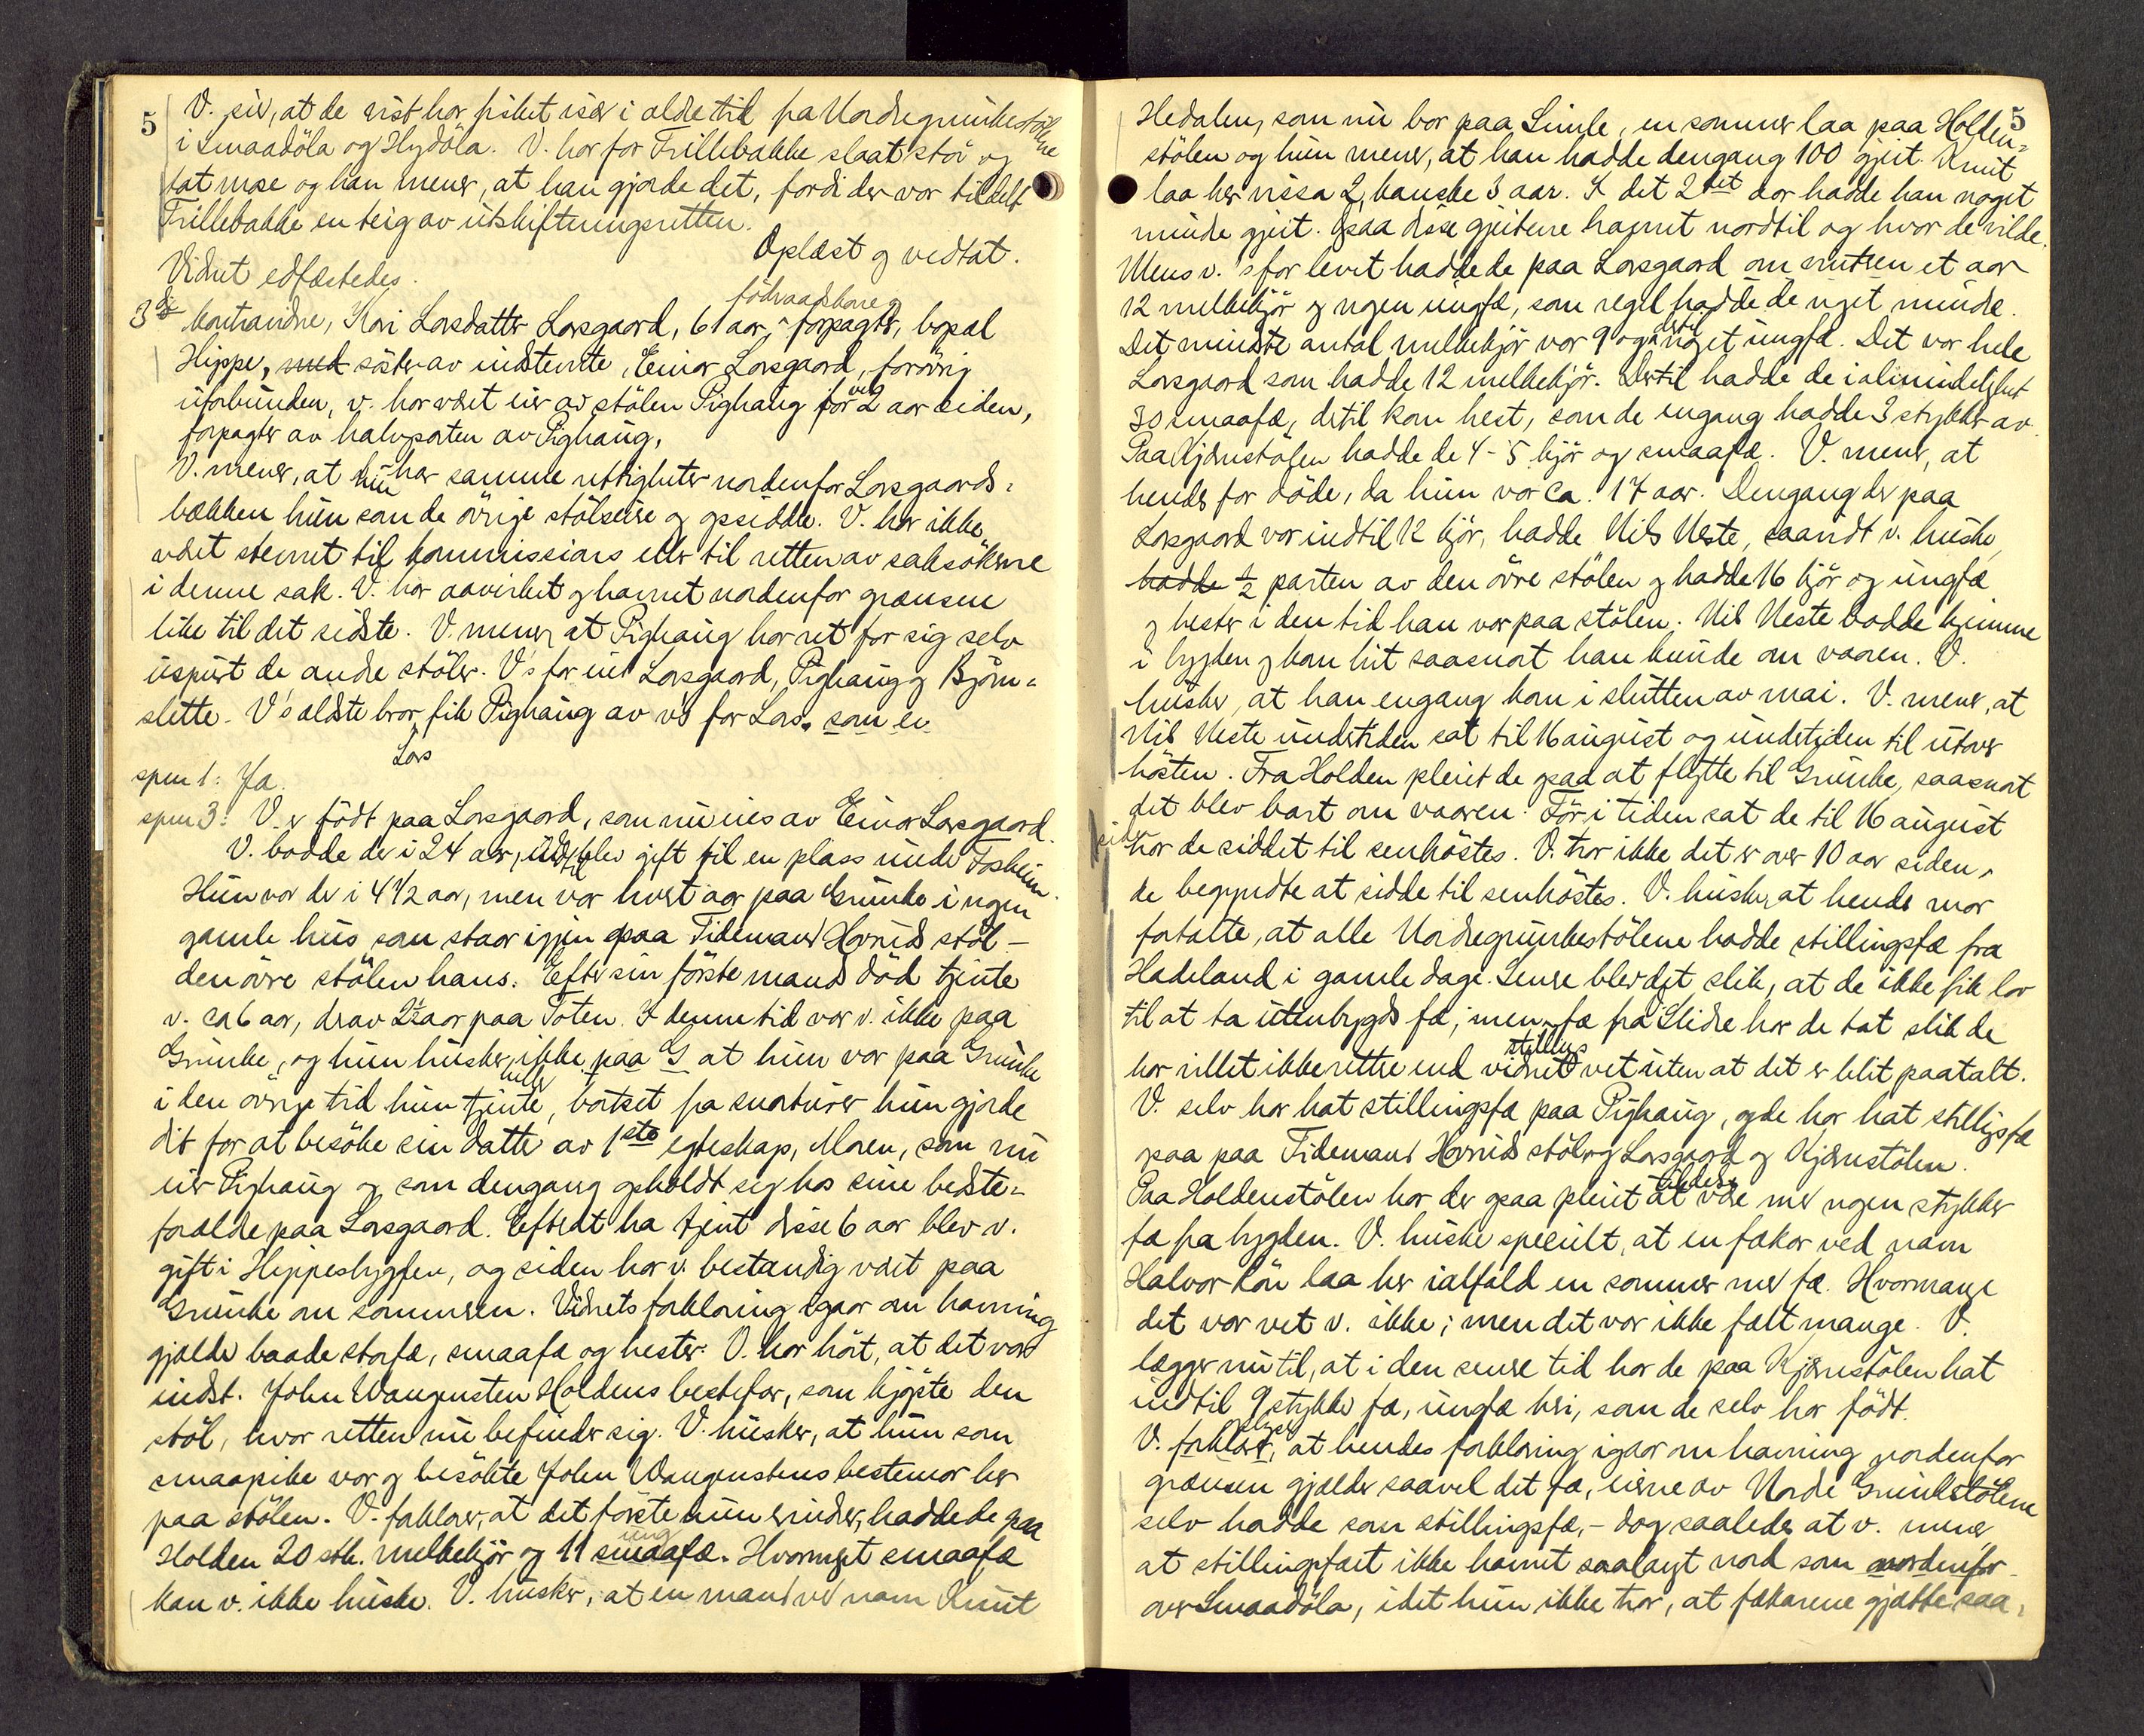 5
V. sier, at de vist har fisket især i ældre tid fra Nordregrunkestölene
i Smaadöla og Hydöla. V. har for Trillebakke slaat stör og
tat mose og han mener, at han gjorde det, fordi der var tildelt
Trillebakke en teig av utskiftningsretten.
Oplæst og vedtat.
Vidnet edfæstedes.
födraadskone og
3die kontravidne, Kari Larsdatter Larsgaard, 61 aar, forpagter, bopæl
Hippe, med söster av indstevnte, Einar Larsgaard, forövrig
uforbunden, v. har været eier av stölen Pighaug for 2 aar siden,
forpagter av halvparten av Pighaug,
V. mener, at hun har samme rettigheter nordenfor Larsgaards=
bækken hun som de övrige stölseiere og opsiddere. V. har ikke
været stevnet til kommissions eller til retten av saksökerne
i denne sak. V. har aavirket og havnet nordenfor grænsen
like til det sidste. V. mener at Pighaug har ret for sig selv
uspurt de andre stöler. V's far eiet Larsgaard, Pighaug og Björn=
slette. V's ældste bror fik Pighaug av v's far Lars. som er
Lars
spm 1: Ja.
spm 3: V. er födt paa Larsgaard, som nu eies av Einar Larsgaard.
V. bodde der i 24 aar, blev gift til en plass under Fosheim.
Hun var der i 4 1/2 aar, men var hvert aar paa Grunke i nogen
gamle hus som staar igjen paa Tidemand Hovrids stöl -
den övre stölen hans. Efter sin förste mands död tjente
v. ca 6 aar, derav 2 aar paa Toten. I denne tid var v. ikke paa
Grunke, og hun husker ikke paa G at hun var paa Grunke
i den övrige tid hun tjente, bortset fra snarturer hun gjorde
dit for at besöke sin datter av 1ste egteskap, Maren, som nu
eier Pighaug og som dengang opholdt sig hos sine bedste=
forældre paa Larsgaard. Efter at ha tjent disse 6 aar blev v.
gift i Hippesbygden, og siden har v. bestandig været paa
Grunke om sommeren. Vidnets forklaring igaar om havning
gjælder baade storfæ, smaafæ og hester. V. har hört, at det var
indst. John Wangensten Holdens bestefar, som kjöpte den
stöl, hvor retten nu befinder sig. V. husker, at hun som
smaapike var og besökte John Wangenstens bestemor her
paa stölen. V. forklarer, at det förste hun erindrer, hadde de paa
ung
Holden 20 stk. melkekjör og 11 smaafæ. Hvormeget smaafæ
kan v. ikke huske. V. husker, at en mand ved navn Knut
5
Hedalen, som nu bor paa Limle, en sommer laa paa Holden=
stölen og hun mener, at han hadde dengang 100 gjeit. Knut
laa her vissa 2, kanske 3 aar. I det 2det aar hadde han noget
mindre gjeit. Ogsaa disse gjeitene havnet nordtil og hvor de vilde.
Mens v.'s far levet hadde de paa Larsgaard om vintren et aar
12 melkekjör og nogen ungfæ, som regel hadde de noget mindre.
dertil
Det mindste antal melkekjör var 9 og noget ungfæ. Det var hele
Larsgaard som hadde 12 melkekjör. Dertil hadde de i almindelighet
30 smaafæ, dertil kom hest, som de engang hadde 3 stykker av.
Paa Kjærnstölen hadde de 4-5 kjör og smaafæ. V. mener, at
hendes far döde, da hun var ca. 17 aar. Dengang der paa
Larsgaard var indtil 12 kjör, hadde Nils Neste, saavidt v. husker
hadde 1/2 parten av den övre stölen og hadde 16 kjör og ungfæ
og hester i den tid han var paa stölen. Nils Neste bodde hjemme
i bygden og kom hit saasnart han kunde om vaaren. V.
husker, at han engang kom i slutten av mai. V. mener, at
Nils Neste undertiden sat til 16 august og undertiden til utover
hösten. Fra Holden pleiet de ogsaa at flytte til Grunke, saasnart
det blev bart om vaaren. För i tiden sat de til 16 august
siden har de siddet til senhöstes. V. tror ikke det er over 10 aar siden,
de begyndte at sidde til senhöstes. V. husker, at hendes mor
fortalte, at alle Nordregrunkestölene hadde stillingsfæ fra
Hadeland i gamle dage. Senere blev det slik, at de ikke fik lov
til at ta utenbygds fæ, men fæ fra Slidre har de tat slik de
stillings
har villet ikke rettere end vidnet vet uten at det er blit paatalt.
V. selv har hat stillingsfæ paa Pighaug, og de har hat stillingsfæ
ogsaa paa Tidemand Hovrids stöl og Larsgaard og Kjærnstölen.
Paa Holdenstölen har der ogsaa pleiet at være med nogen stykker
fæ fra bygden. V. husker specielt, at en fækar ved navn
Halvor laa her ialfald en sommer med fæ. Hvormange
det var vet v. ikke; men det var ikke fælt mange. V.
lægger nu til, at i den senere tid har de paa Kjærnstölen hat
indtil 9 stykker fæ, ungfæ heri, som de selv har födt.
V. forklarer, at hendes forklaring igaar om havning nordenfor
grænsen gjælder saavel det fæ, eierne av Nordre Grunkestölene
selv hadde som stillingsfæ, - dog saaledes at v. mener
at stillingsfæet ikke havnet saalangt nord som nordenfor
over Smaadöla, idet hun ikke tror, at fækarene gjætte saa=